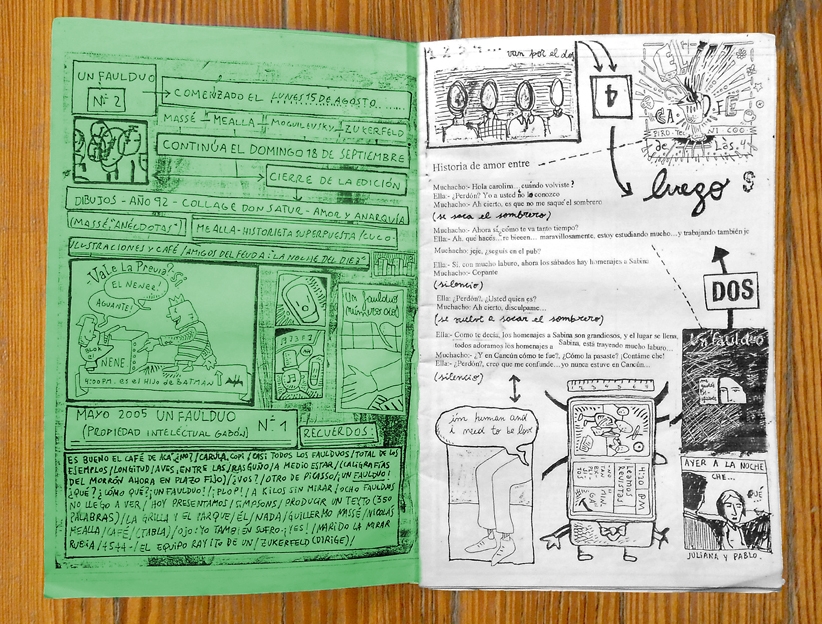 UN FAULDUO
Nº 2
COMENZADO EL LUNES 15 DE AGOSTO
MASSÉ - MEALLA - MOGUILEVSKY - ZUKERFELD
CONTINÚA EL DOMINGO 18 DE SEPTIEMBRE
CIERRE DE LA EDICIÓN
DIBUJOS - AÑO 92 - COLLAGE DON SATUR - AMOR Y ANARQUÍA
(MASSÉ, "ANÉCDOTAS")
MEALLA - HISTORIETA SUPERPUESTA / CULO
ILUSTRACIONES Y CAFÉ / AMIGOS DEL FEUDO A "LA NOCHE DEL DIEZ"
-Vale La Previa!
EL NENEE!
AGUANTE!
NENE
4:00 PM. es el HIJO de BATMAN
Un faulduo
número
MAYO 2005 UN FAULDUO Nº 1
(PROPIEDAD INTELECTUAL GABÓN)
RECUERDOS:
ES BUENO EL CAFÉ DE ACA, ¿NO? / CARULA, COM / CASI TODOS LOS FAULDUOS / TOTAL DE LOS
EJEMPLOS / LONGITUD / AVES, ENTRE LAS / RASGUÑO / A MEDIO ESTAR / (CALIGRAFÍAS
DEL MORRÓN AHORA EN PLAZO FIJO) / ¿VOS? / OTRO DE PICASSO / UN FAULDUO!
¿QUÉ? ¿CÓMO QUÉ?, UN FAULDUO! / ¡PLOP! / A KILOS SIN MIRAR / OCHO FAULDUOS
NO LLEGO A VER / HOY PRESENTAMOS / SIMPSONS / PRODUCIR UN TEXTO (350
PALABRAS) / LA GRILLA Y EL PARQUE / ÉL / NADA / GUILLERMO MASSÉ / NICOLÁS
MEALLA / CAFÉ / (TABLA) / OJO: YO TAMBIÉN SUFRO / ¡ES! / MARIDO LA MIRAR
RUEDA / 4544 - / EL EQUIPO RAYITO DE UN / ZUKERFELD (DIRIGE) /
1 2 3 ... van por el dos
4
CA FE
de Las 4
Historia de amor entre
luego
Muchacho:- Hola carolina... cuándo volviste?
Ella:- ¿Perdón? Yo a usted no lo conozco
Muchacho:- Ah cierto, es que no me saqué el sombrero
(se saca el sombrero)
Muchacho:- Ahora sí, cómo te va tanto tiempo?
Ella:- Ah, qué hacés... re bieeen... maravillosamente, estoy estudiando mucho... y trabajando también je
Muchacho: jeje, ¿seguís en el pub?
Ella:- Sí, con mucho laburo, ahora los sábados hay homenajes a Sabina
Muchacho:- Copante
(silencio)
Ella:- ¿Perdón?, ¿Usted quien es?
Muchacho: Ah cierto, disculpame...
(se vuelve a sacar el sombrero)
Ella:- Como te decía, los homenajes a Sabina son grandiosos, y el lugar se llena,
todos adoramos los homenajes a Sabina, está trayendo mucho laburo...
Muchacho:- ¿Y en Cancún cómo te fue?, ¿Cómo la pasaste? ¡Contáme che!
Ella:- ¿Perdón?, creo que me confunde... yo nunca estuve en Cancún...
(silencio)
DOS
Un faulduo
i'm human and
i need to be love
4:30 PM
Leamos
Revistas
AYER A LA NOCHE
CHE...
QUÉ
JULIANA Y PABLO.